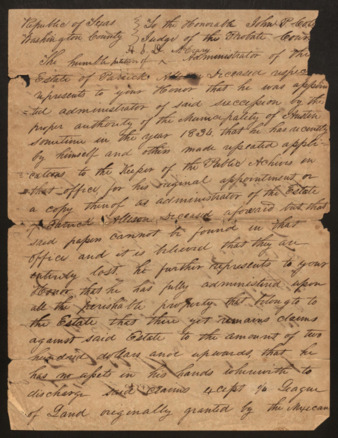 Republic of Texas } To the Honorable John P Coles
Washington County } Judge of the Probate Court
The humble of Administrator of the
Estate of Patrick deceased
represents to your Honor that he was appoin
ted administrator of said succession by the
proper authority of the Municipality of Austin
sometime in the year 1836 that he has recently
by himself and others made repeated appli-
cations to the Keeper of the Public Achives in
that office for his original appointment or
a copy thereof as administrator of the Estate
of Patrick deceased aforesaid but that
said papers cannot be found in that
office and it is believed that they are
entirely lost, he further represents to your
Honor that he has fully administered upon
all the perishable property that belongs to
the Estate that there yet remains claims
against said Estate to the amount of two
hundred dollars and upwards, that he
has no assets in his hands wherewith to
discharge said claims except League
of Land originally granted by the Mexican